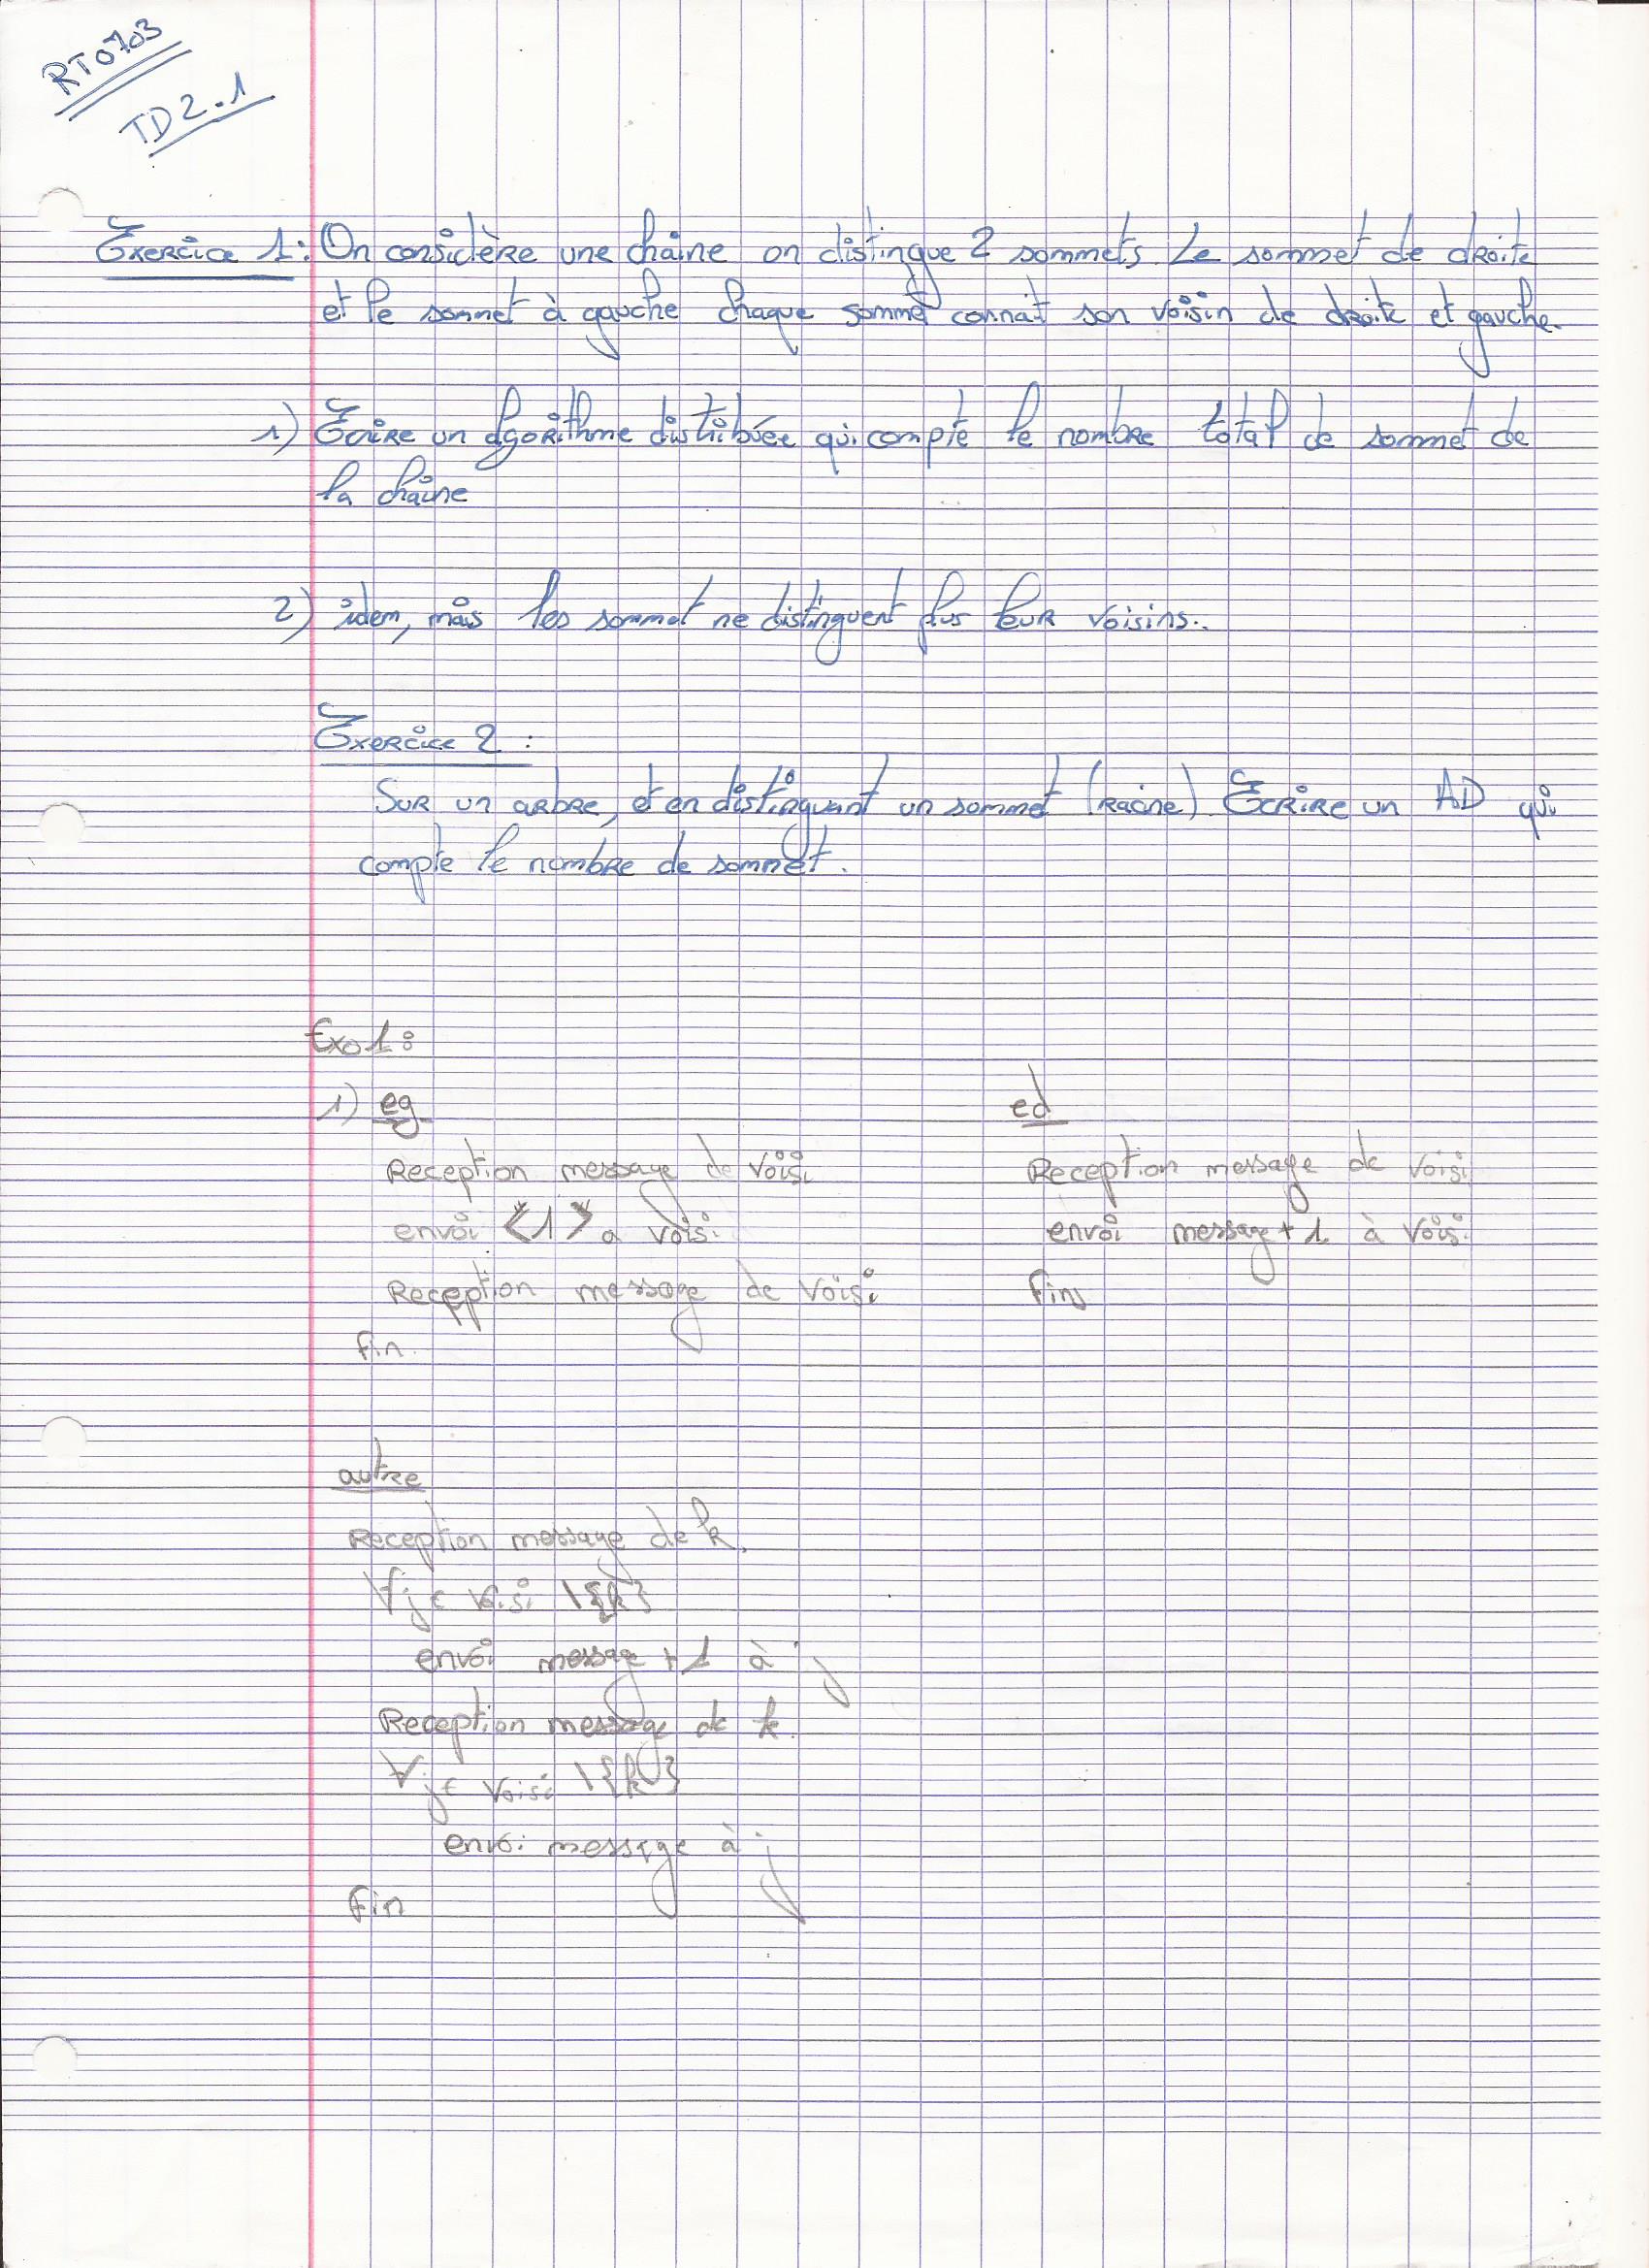 RT0703
TD2.1
Exercice 1: On considère une chaîne on distingue 2 sommets. Le sommet de droite
et le sommet à gauche chaque sommet connait son voisin de droite et gauche.
1) Ecrire un algorithme distribuée qui compte le nombre total de sommet de
la chaîne
2) idem, mais les sommet ne distinguent plus leur voisins..
Exercice 2 :
Sur un arbre, et en distinguant un sommet (racine). Ecrire un AD qui
compte le nombre de sommet.
Exo 1:
1) eg
Reception message de Voisi
envoi <1> a voisi
Reception message de Voisi
fin.
ed
Reception message de voisi
envoi message + 1 à Voisi
fin
autre
Reception message de k.
∀j∈ Voisi \{k}
envoi message + 1 à j
Reception message de k.
∀j∈ Voisi \{k}
envoi message à j
fin